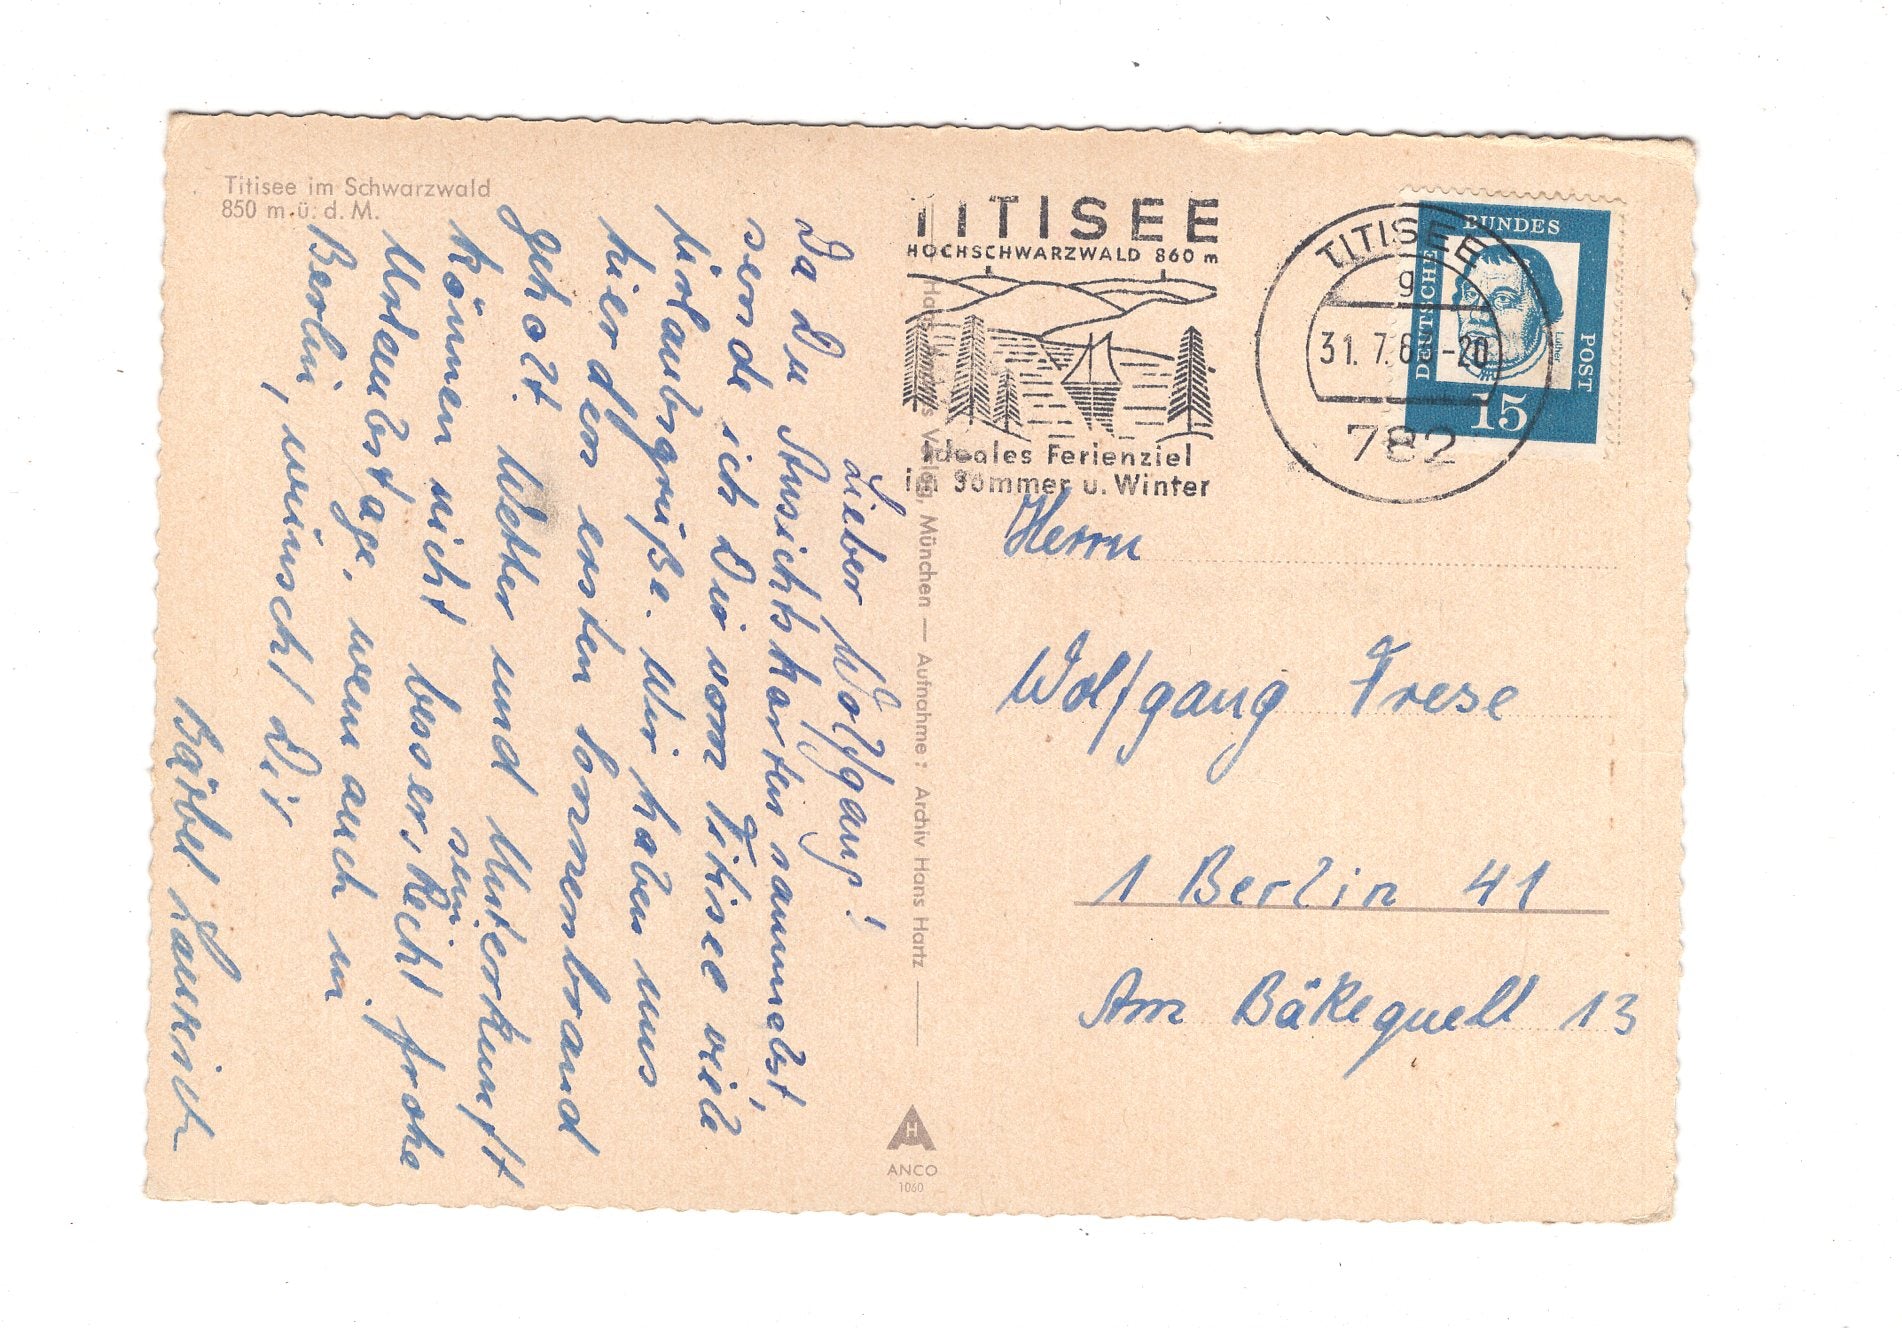 Titisee im Schwarzwald
850 m ü. d. M.
Lieber Wolfgang!
Da Du Ansichtskarten sammelst,
sende ich Dir vom Titisee viele
Urlaubsgrüße. Wir haben uns
hier den ersten Sonnenbrand
geholt. Wetter und Unterkunft
können nicht besser sein.
Recht frohe
Urlaubstage, wenn auch in
Berlin, wünscht Dir
Bärbel
Verlag, München — Aufnahme: Archiv Hans Hartz
H
ANCO
1060
TITISEE
HOCHSCHWARZWALD 860 m
Ideales Ferienziel
im Sommer u. Winter
TITISEE
g
31. 7. 6 -20
782
DEUTSCHE
BUNDES
POST
Luther
15
Herrn
Wolfgang Frese
1 Berlin 41
Am Bäkequell 13